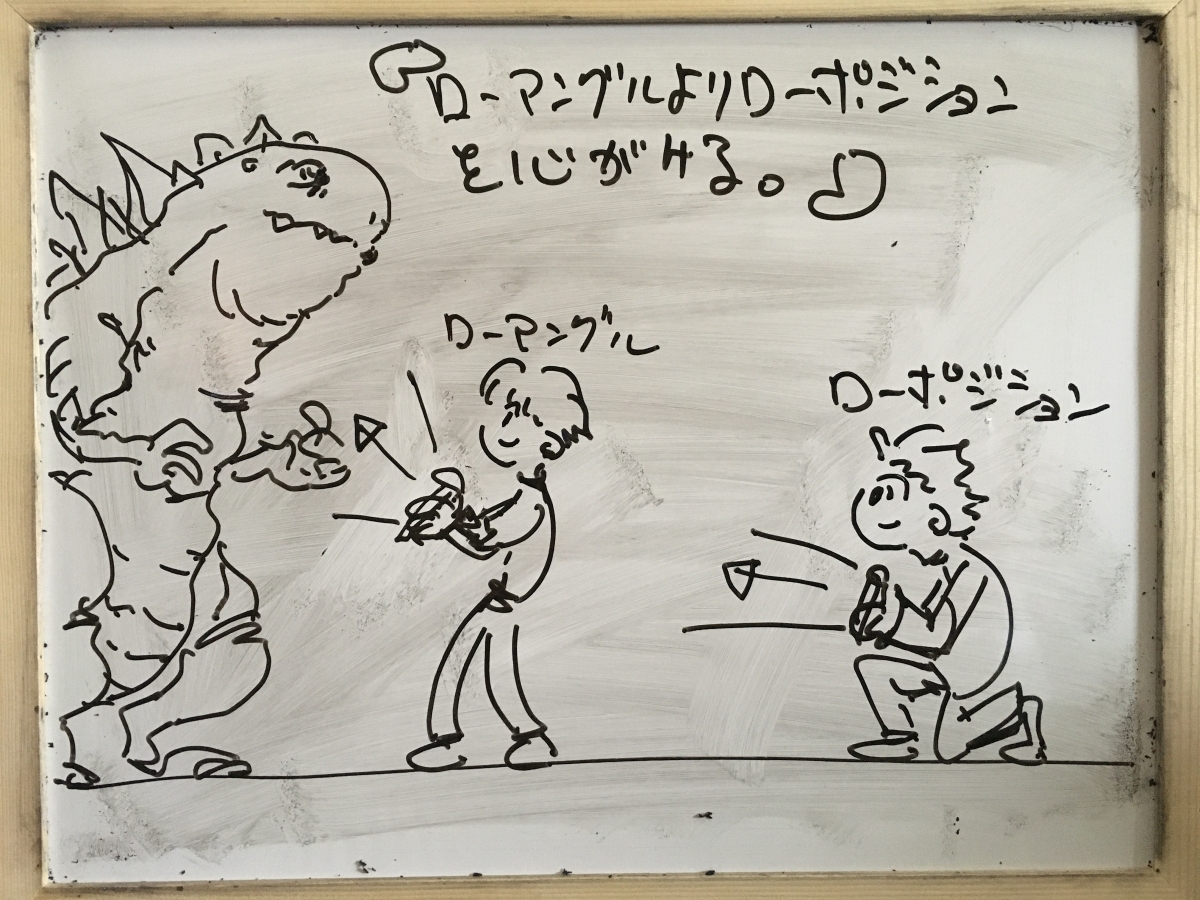 ローアングルよりローポジション
を心がける。
ローアングル
ローポジション